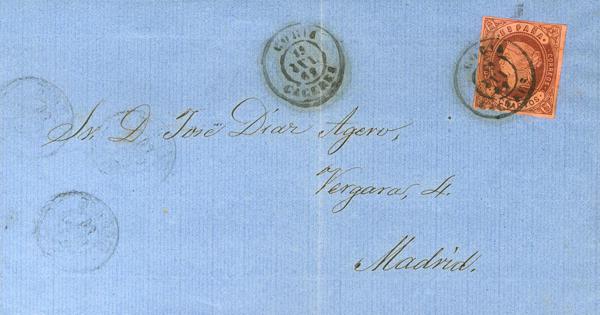 CORIA
19
CACERES
ESPAÑA
CORREOS
Sr. D. José Díaz Agero,
Vergara, 4.
Madrid.